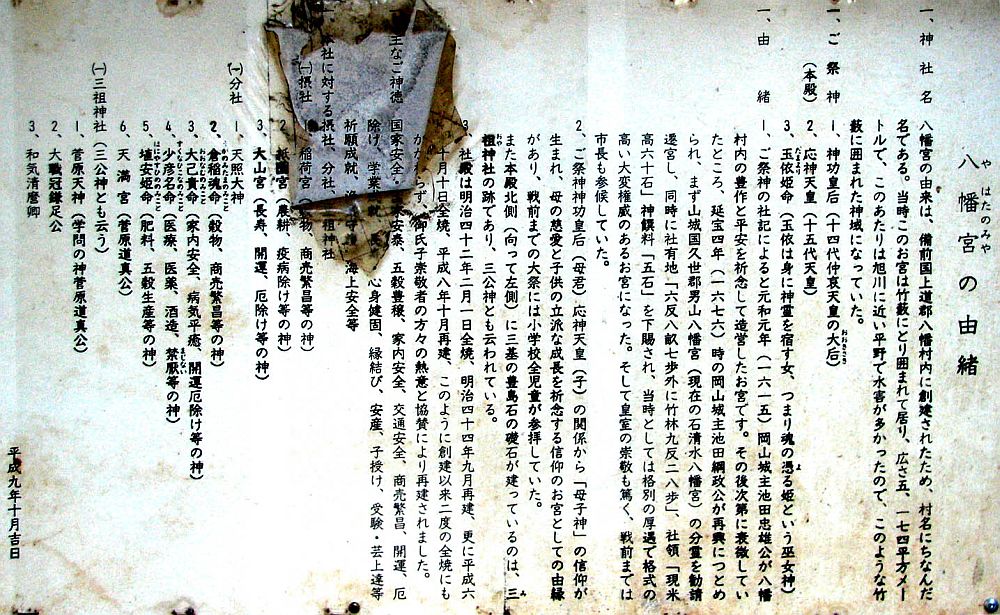 八幡宮の由緒
はたのみや
一、神社名
八幡宮の由来は、備前国上道郡八幡村内に創建されたため、村名にちなんだ
名である。当時このお宮は竹藪にどり囲まれて居り、広さ五、一七四平方メー
トルで、このあたりは旭川に近い平野で水害が多かったので、このような竹
藪に囲まれた神域になっていた。
一、ご祭神
(本殿)
1、神功皇后(十四代仲哀天皇の大后)
おおきさき
2、応神天皇(十五代天皇)
3、玉依姫命(玉依は身に神霊を宿す女、つまり魂の憑る姫という巫女神)
一、由緒
1、ご祭神の社記によると元和元年(一六一五)岡山城主池田忠雄公が八幡
村内の豊作と平安を祈念して造営したお宮です。その後次第に衰微してい
たところ、延宝四年(一六七六)時の岡山城主池田綱政公が再興につとめ
られ、まず山城国久世郡男山八幡宮(現在の石清水八幡宮)の分霊を勧請
遷宮し、同時に社有地「六反八畝七歩外に竹林九反二八歩」、社領「現米
高六十石」神饌料「五石」を下賜され、当時としては格別の厚遇で格式の
高い大変権威のあるお宮になった。そして皇室の崇敬も篤く、戦前までは
市長も参候していた。
2、ご祭神神功皇后(母君)応神天皇(子)の関係から「母子神」の信仰が
生まれ、母の慈愛と子供の立派な成長を祈念する信仰のお宮としての由縁
があり、戦前までの大祭には小学校全児童が参拝していた。
また本殿北側(向って左側)に三基の豊島石の礎石が建っているのは、三
祖神社の跡であり、三公神とも云われている。
3、社殿は明治四十二年二月一日全焼、明治四十四年九月再建、更に平成六
年十月十日全焼、平成八年十月再建、このように創建以来二度の全焼にも
かかわらず、御氏子崇敬者の方々の熱意と協賛により再建されました。
主なご神徳
国家安全・ 安泰、五穀豊穣、家内安全、交通安全、商売繁昌、開運、厄
除け、学業 心身健固、縁結び、安産、子授け、受験・芸上達等
祈願成就、 海上安全等
本社に対する摂社、分社、 祖神社
(一)摂社
1、稲荷宮( 物、商売繁昌等の神)
2、祇園宮(農耕、疫病除け等の神)
3、大山宮(長寿、開運、厄除け等の神)
(一)分社
1、天照大神
2、倉稲魂命(穀物、商売繁昌等の神)
3、大己貴命(家内安全、病気平癒、開運厄除け等の神)
4、少彦名命(医療、医薬、酒造、禁厭等の神)
5、埴安姫命(肥料、五穀生産等の神)
6、天満宮(菅原道真公)
(一)三祖神社(三公神とも云う)
1、菅原天神(学問の神菅原道真公)
2、大職冠鎌足公
3、和気清麿卿
平成九年十月吉日